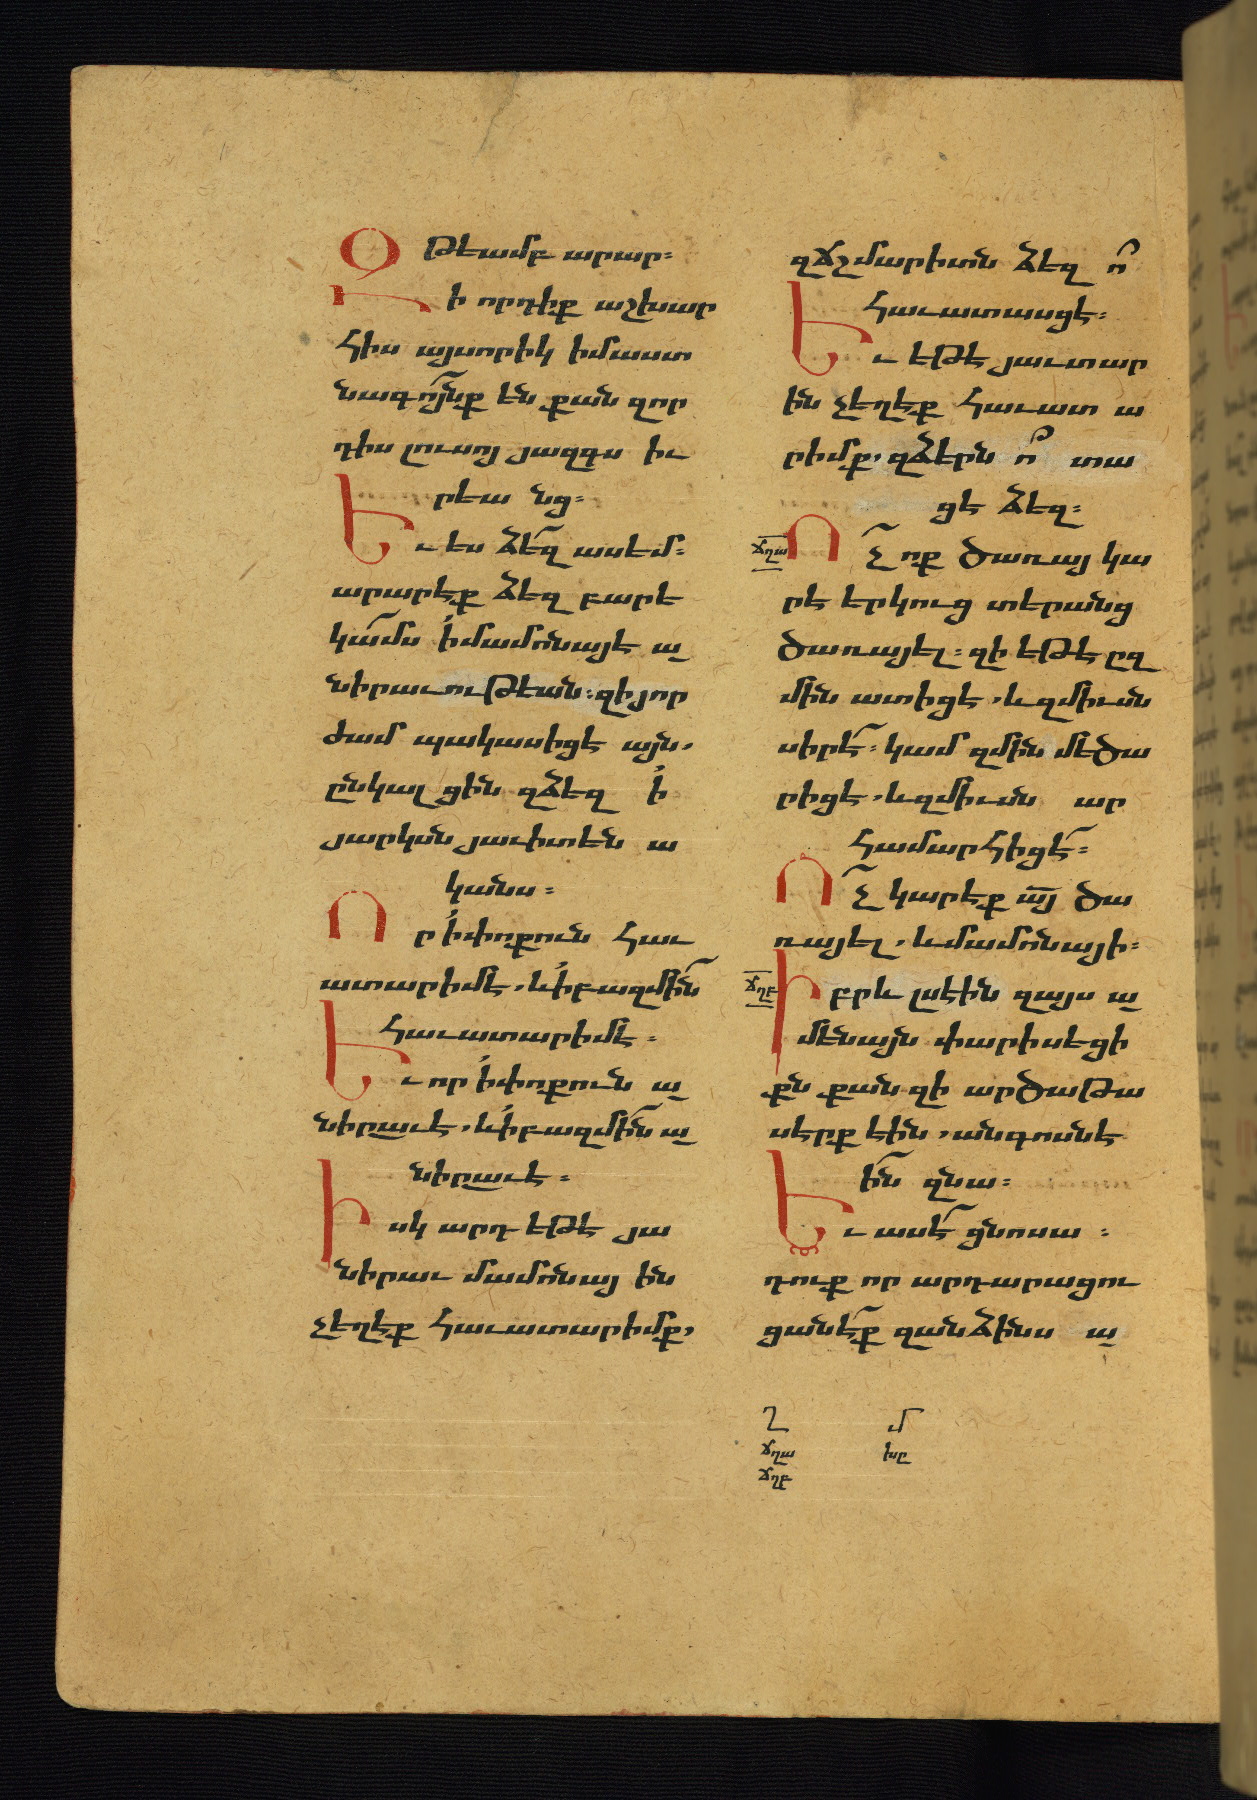 թեամբ արար։
Զի որդիք աշխար
հիս այսորիկ իմաստ
նագոյնք են քան զոր
դիս լուսոյ յազգս իւ
րեա նց։
Եւ ես ձեզ ասեմ։
արարէք ձեզ բարե
կամս ի մամոնայէ ա
նիրաւութեան։ զի յոր
ժամ պակասիցէ այն,
ընկալ ցին զձեզ ի
յարկսն յաւիտեն ա
կանս։
Որ ի փոքուն հաւ
ատարիմ է, և ի բազմին
հաւատարիմ է։
Եւ որ ի փոքուն ա
նիրաւ է, և ի բազմին ա
նիրաւ է։
Իսկ արդ եթե յա
նիրաւ մամոնայ ին
չեղէք հաւատարիմք,
զճշմարիտն ձեզ ո՞
հաւատասցէ։
Եւ եթե յաւտար
ին չեղեք հաւատ ա
րիմք, զձերն ո՞ տա
ցէ ձեզ։
ճղա
Ոչ ոք ծառայ կա
րէ երկուց տերանց
ծառայել։ զի եթե ըզ
մին ատիցէ, և զմիւսն
սիրէ՛։ կամ զմին մեծա
րիցէ, և զմիւսն ար
համարհիցէ՛։
Ոչ կարեք ա՟յ ծա
ռայել, և մամոնայի։
ճղբ
Իբրև լսէին զայս ա
մենայն փարիսեցի
քն քան զի արծաթա
սերք էին, անգոսնէ
ին զնա։
Եւ ասէ ցնոսա։
դուք որ արդարացու
ցանէք զանձինս ա
Ղ Մ
ճղա խը
ճղբ